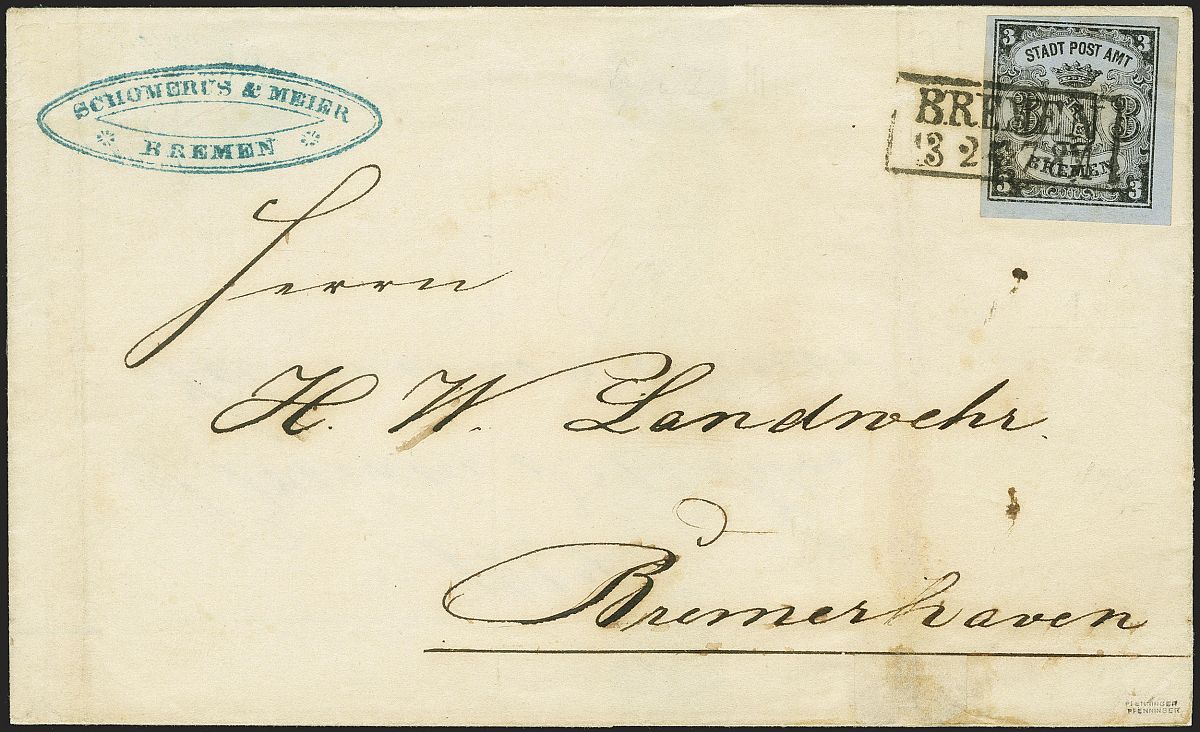 SCHOMERUS & MEIER
BREMEN
3 3
STADT POST AMT
BREMEN
BREMEN
3 3
Herrn
H. W. Landwehr.
Bremerhaven
PFENNINGER
PFENNINGER